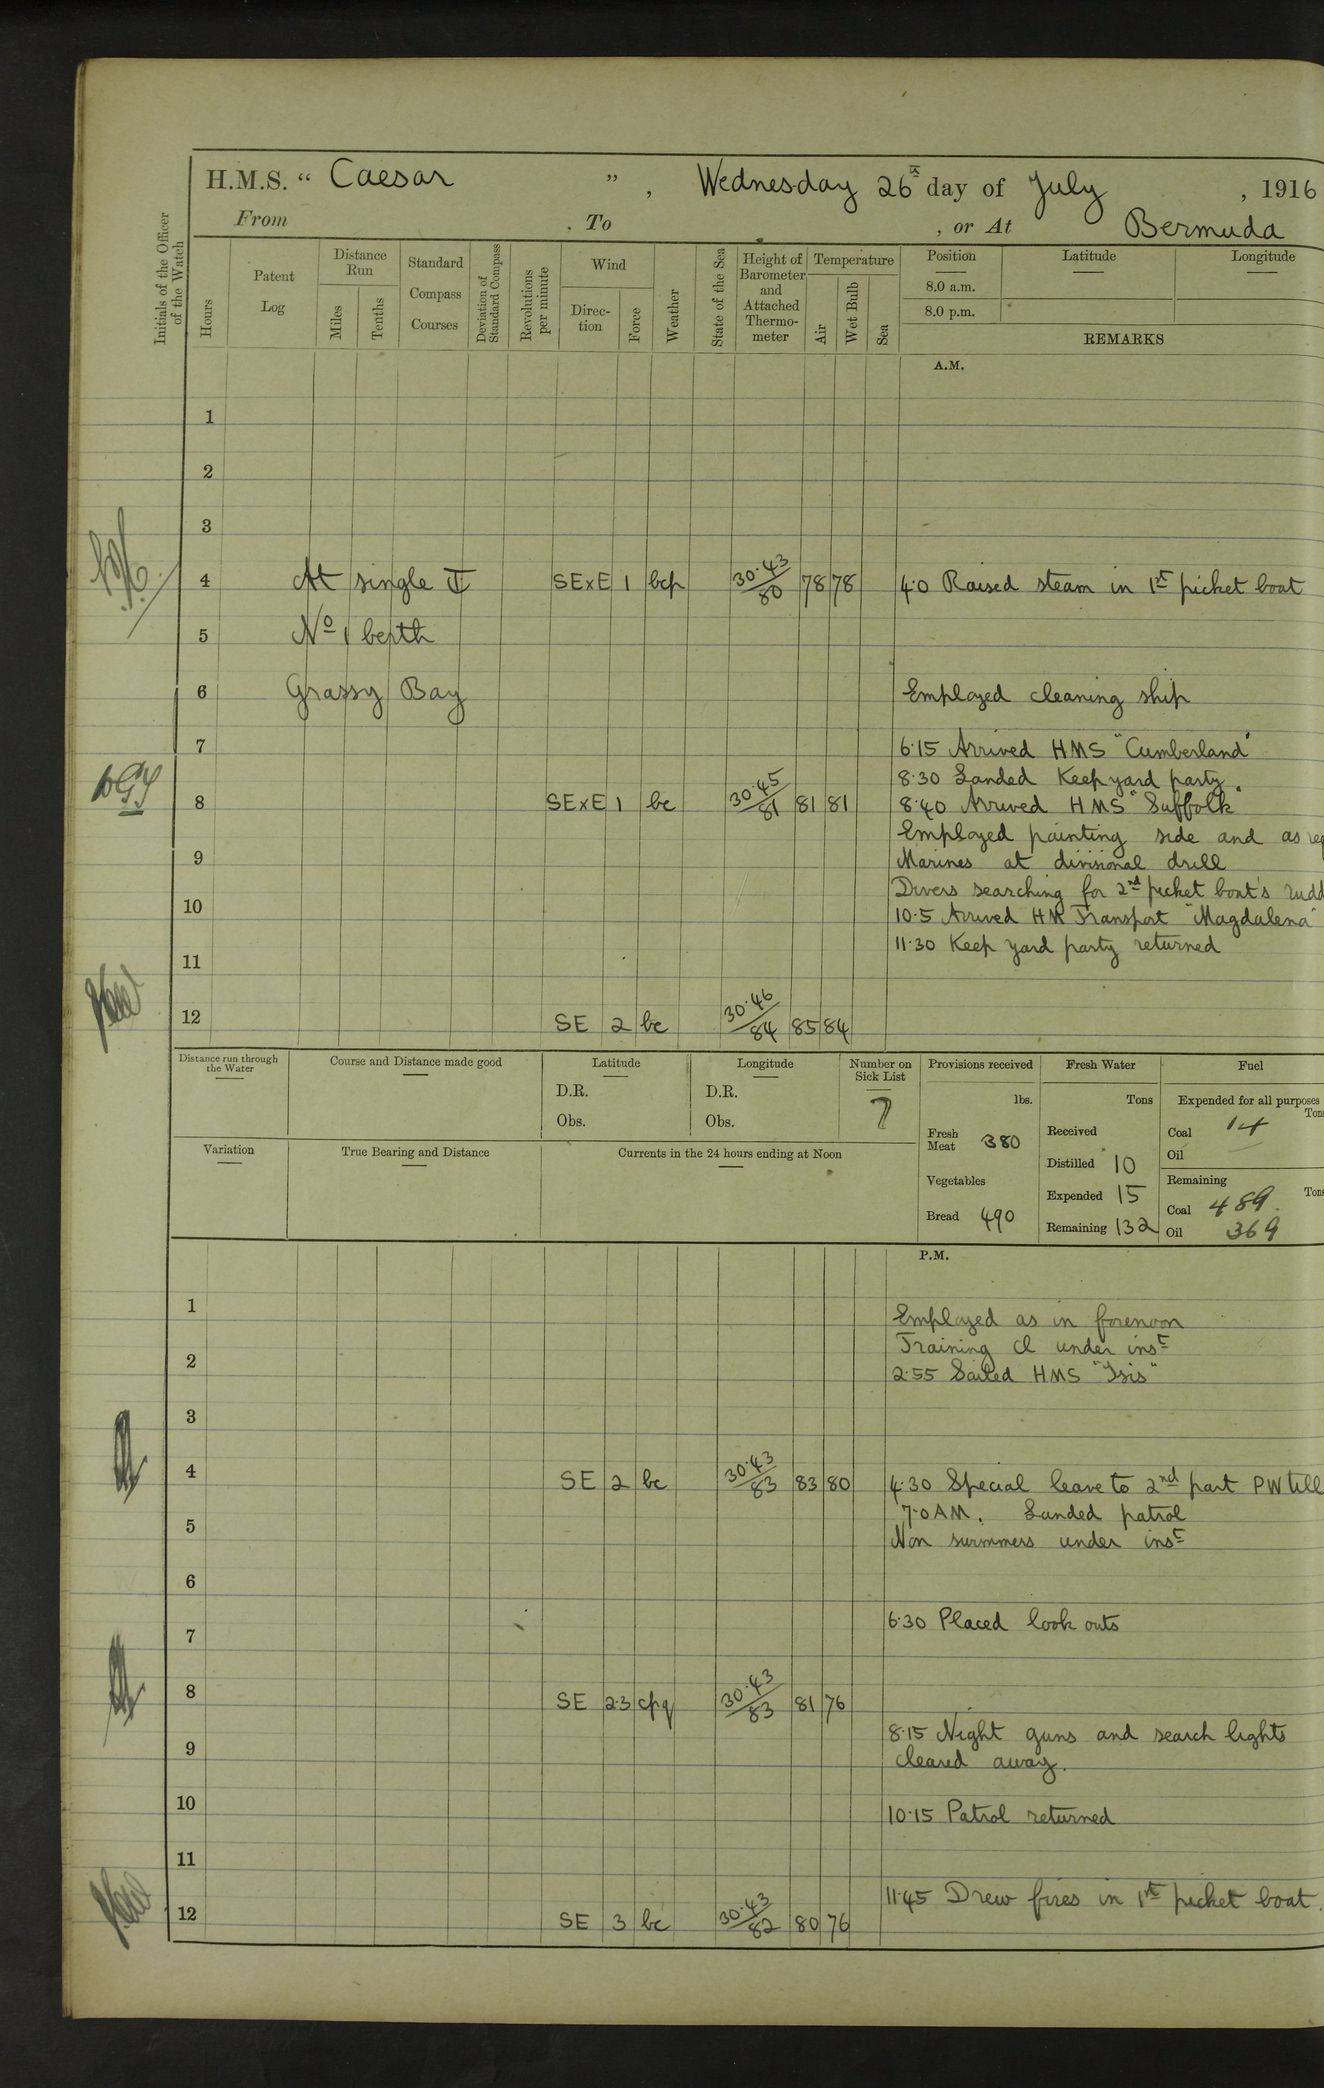 H.M.S. " Caesar ", Wednesday 26th day of July, 1916
From , To , or At Bermuda
Initials of the Officer of the Watch
Hours
Patent Log
Distance Run
Miles
Tenths
Standard Compass Courses
Deviation of Standard Compass
Revolutions per minute
Wind
Direction
Force
Weather
State of the Sea
Height of Barometer and Attached Thermometer
Temperature
Air
Wet Bulb
Sea
Position
8.0 a.m.
8.0 p.m.
Latitude
Longitude
REMARKS
A.M.
1
2
3
4 At single SExE 1 bcp 30.43/80 78 78 4.0 Raised steam in 1st picket boat
5 No 1 berth
6 Grassy Bay Employed cleaning ship
7 6.15 Arrived HMS "Cumberland"
8.30 Landed Keepyard party
8 SExE 1 bc 30.45/81 81 81 8.40 Arrived HMS "Suffolk"
Employed painting side and as
9 Marines at divisional drill
Divers searching for 2nd picket boat's
10 10.5 Arrived HM Transport "Magdalena"
11.30 Keep yard party returned
11
12 SE 2 bc 30.46/84 85 84
Distance run through the Water
Course and Distance made good
Latitude
D.R.
Obs.
Longitude
D.R.
Obs.
Number on Sick List
7
Provisions received
lbs.
Fresh Meat 380
Vegetables
Bread 490
Fresh Water
Tons
Received
Distilled 10
Expended 15
Remaining 132
Fuel
Expended for all purposes
Coal 14
Oil —
Remaining
Coal 489
Oil 369
Variation
True Bearing and Distance
Currents in the 24 hours ending at Noon
P.M.
1 Employed as in forenoon
Training Cl under inst
2 2.55 Sailed HMS "Isis"
3
4 SE 2 bc 30.43/83 83 80 4.30 Special leave to 2nd part PW till
7.0 AM. Landed patrol
5 Non swimmers under inst
6
7 6.30 Placed look outs
8 SE 2.3 cpq 30.43/83 81 76
9 8.15 Night guns and search lights
cleared away.
10 10.15 Patrol returned
11
12 SE 3 bc 30.43/82 80 76 11.45 Drew fires in 1st picket boat.